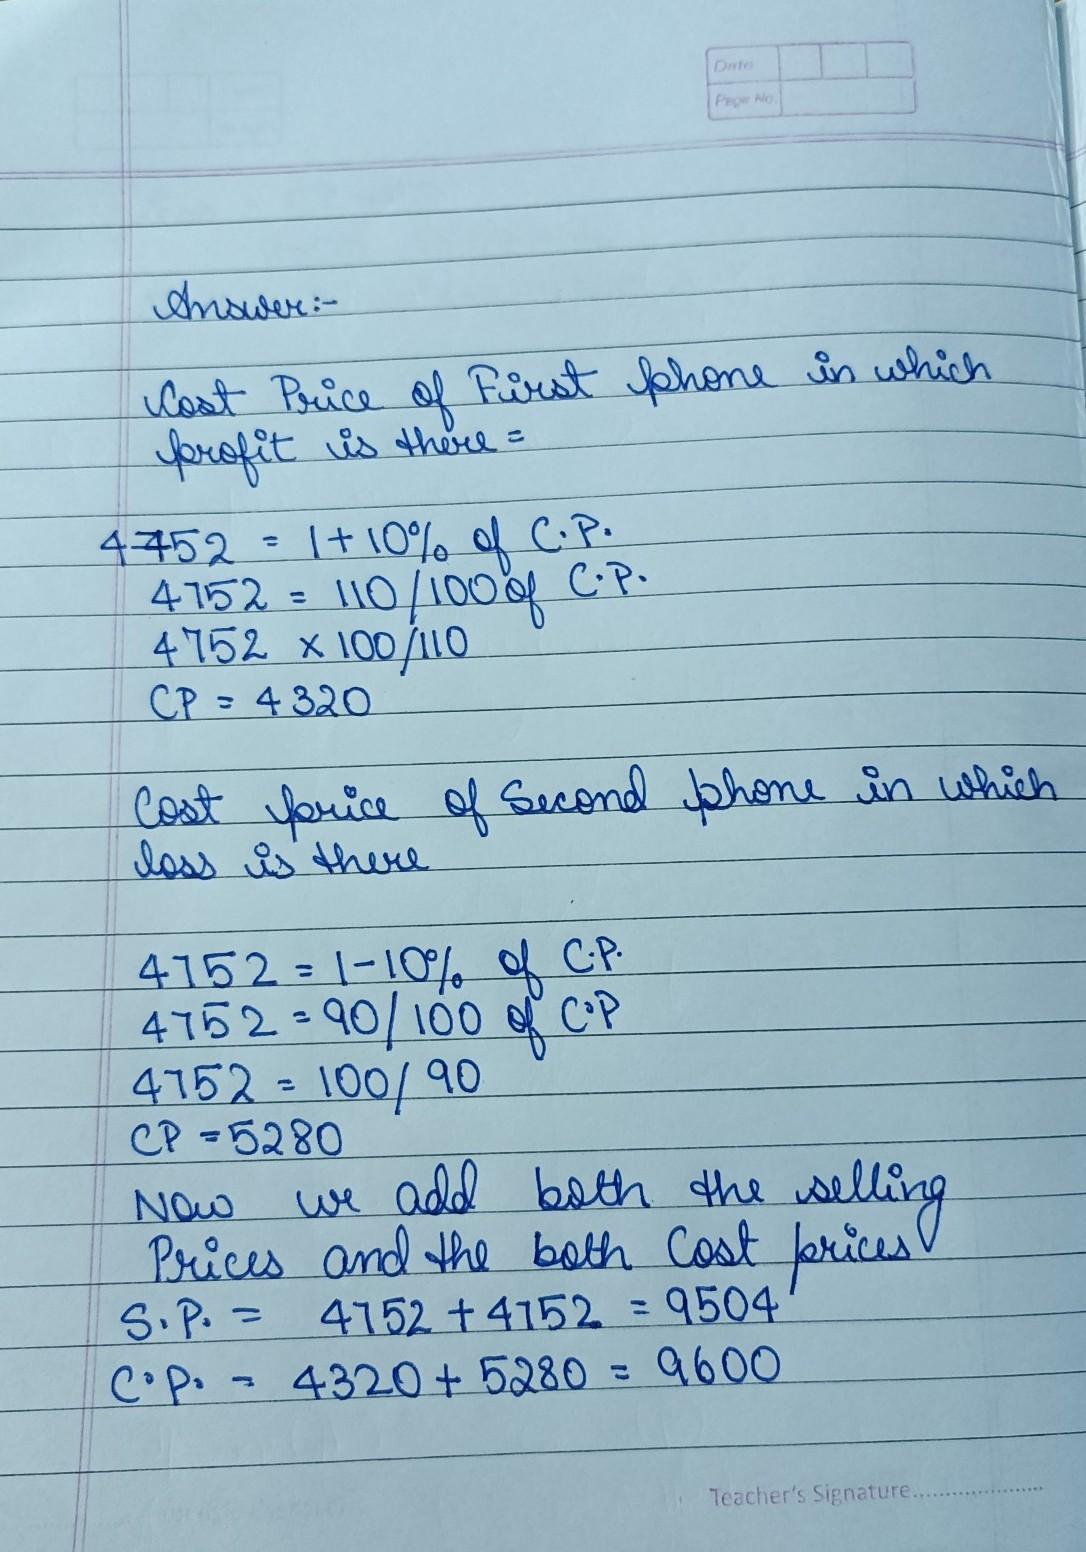 Date
Page No.
Answer:-
Cost Price of First phone in which
profit is there =
4752 = 1+10% of C.P.
4752 = 110/100 of C.P.
4752 x 100/110
CP = 4320
Cost price of Second phone in which
loss is there
4752 = 1-10% of C.P.
4752 = 90/100 of C.P
4752 = 100/90
CP = 5280
Now we add both the selling
Prices and the both Cost prices
S.P. = 4752 + 4752 = 9504
C.P. = 4320 + 5280 = 9600
Teacher's Signature....................